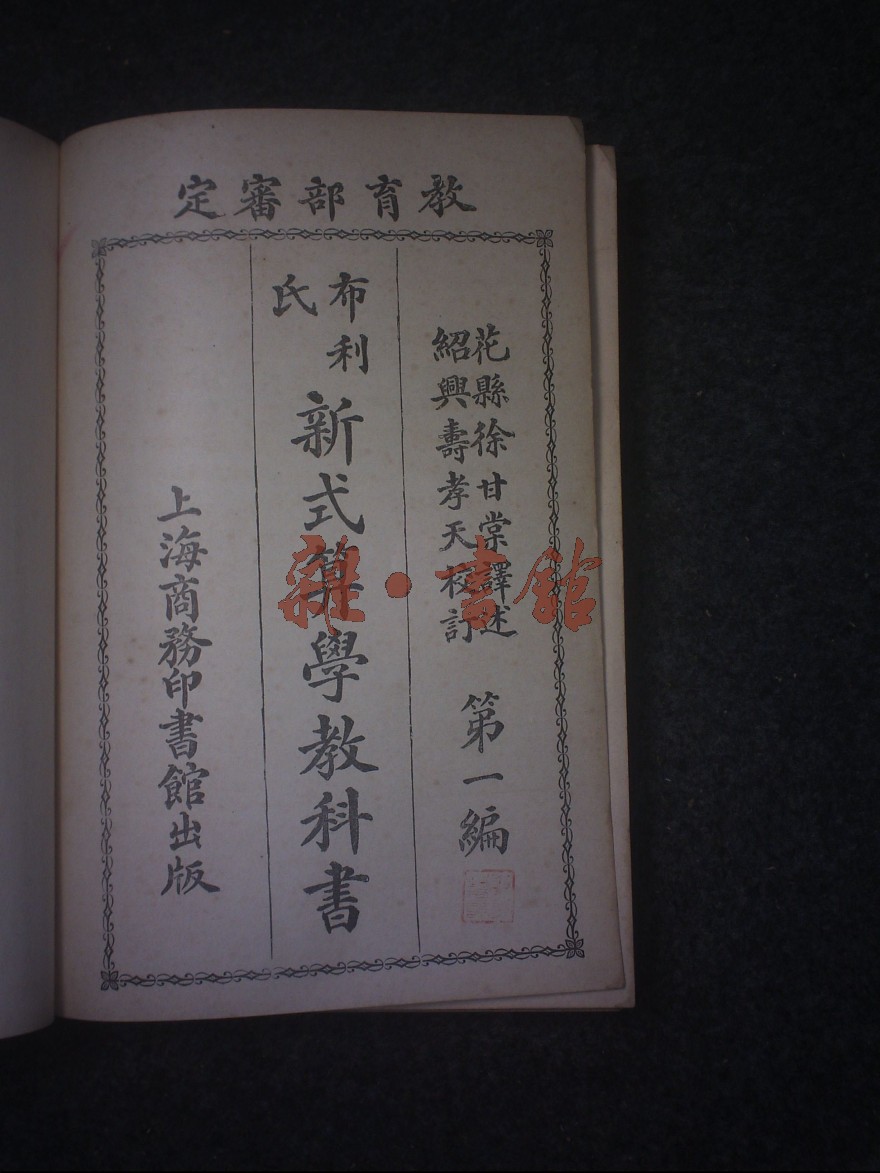 教育部審定
花縣徐甘棠譯述
紹興壽孝天校訂
第一編
布利氏
新式算學教科書
上海商務印書館出版
雜·書館